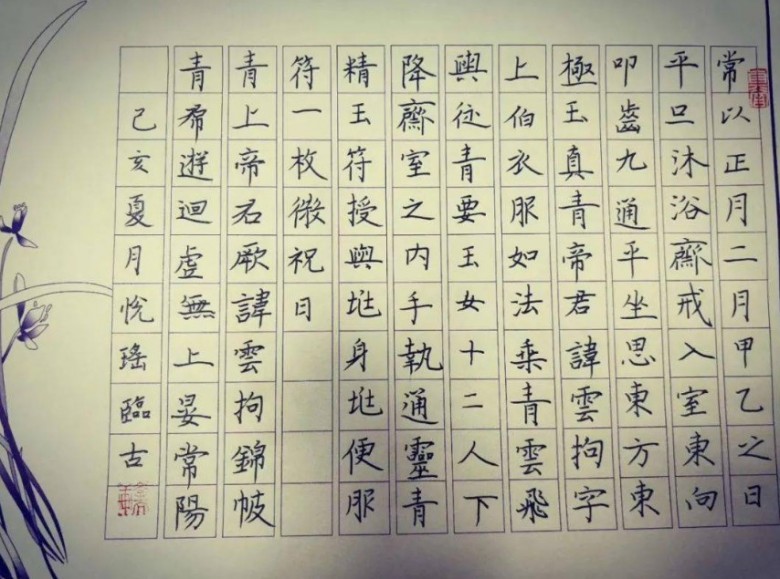 常以正月二月甲乙之日
平旦沐浴齋戒入室東向
叩齒九通平坐思東方東
極玉真青帝君諱雲拘字
上伯衣服如法乘青雲飛
輿從青要玉女十二人下
降齋室之內手執通靈青
精玉符授與垗身垗便服
符一枚微祝曰
青上帝君厥諱雲拘錦帔
青希遊迴虛無上晏常陽
己亥夏月悅瑤臨古